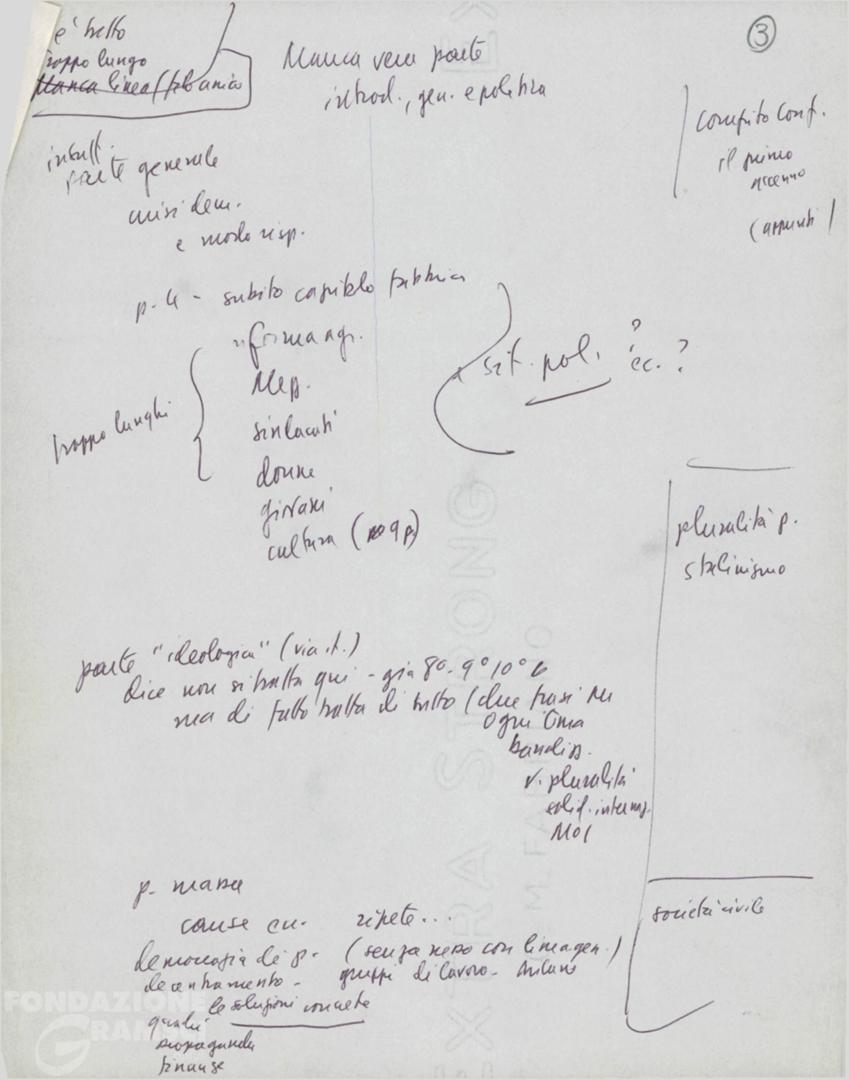 3
è bello
troppo lungo
Manca linea (
Manca vera parte
introd., gen. e politica
compito conf.
il primo
accenno
(appunti)
insuff.
parte generale
crisi dem.
e modo risp.
p. 4 - subito capitolo fabbrica
riforma agr.
Mezz.
sindacati
donne
giovani
cultura ( 9 p)
troppo lunghi
sit. pol. ? ec. ?
pluralità p.
stalinismo
parte "ideologica" (via it.)
dice non si tratta qui - già 8° - 9° 10° c
ma di fatto tratta di tutto (due frasi su
ogni tema
v. pluralità
solid. internaz.
MOI
società civile
p. massa
cause cu. ripete...
democrazia di p. (senza nesso con linea gen.)
decentramento - gruppi di lavoro - Milano
le soluzioni concrete
quadri
propaganda
finanze
FONDAZIONE
GRAMSCI
EXTRA STRONG